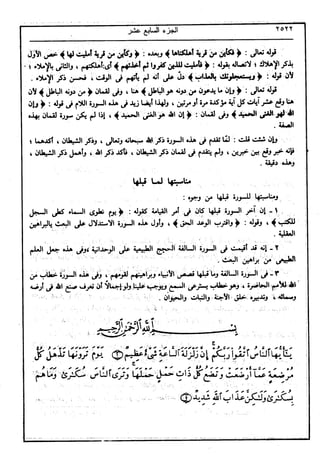 ٢٥٢٢ الجزء السابع عشر
قوله تعالى : ﴿ فكأين من قرية أهلكناها ﴾ وبعده : ﴿ وكأين من قرية أمليت لها ﴾ خص الأول
بذكر الإهلاك ؛ لاتصاله بقوله : ﴿ فأمليت للذين كفروا ثم أخذتهم ﴾ أى : أهلكتهم ، والثانى بالإملاء ؛
لأن قوله : ﴿ ويستعجلونك بالعذاب ﴾ دل على أنه لم يأتهم فى الوقت ، فحسن ذكر الإملاء .
قوله تعالى : ﴿ وأن ما يدعون من دونه هو الباطل ﴾ هنا ، وفى لقمان ﴿ من دونه الباطل ﴾ لأن
هنا وقع عشر آيات كل آية مؤكدة مرة أو مرتين ، ولهذا أيضا زيد فى هذه السورة اللام فى قوله : ﴿ وإن
الله لهو الغنى الحميد ﴾ وفى لقمان : ﴿ إن الله هو الغنى الحميد ﴾ ، إذا لم يكن سورة لقمان بهذه
الصفة .
وإن شئت قلت : لمّا تقدم فى هذه السورة ذكر الله سبحانه وتعالى ، وذكر الشيطان ، أكدهما ؛
فإنه خبر وقع بين خبرين ، ولم يتقدم فى لقمان ذكر الشيطان ، فأكد ذكر الله ، وأهمل ذكر الشيطان ،
وهذه دقيقة .
مناسبتها لما قبلها
ومناسبتها للسورة قبلها من وجوه :
١ – إن آخر السورة قبلها كان فى أمر القيامة كقوله : ﴿ يوم نطوى السماء كطى السجل
للكتب ﴾ ، وقوله : ﴿ واقترب الوعد الحق ﴾ ، وأول هذه السورة الاستدلال على البعث بالبراهين
العقلية .
٢ – إنه قد أقيمت فى السورة السالفة الحجج الطبيعية على الوحدانية ، وفى هذه جعل العلم
الطبيعى من براهين البعث .
٣ – فى السورة السالفة وما قبلها قصص الأنبياء وبراهينهم لقومهم ، وفى هذه السورة خطاب من
الله للأمم الحاضرة ، وهو خطاب يسترعى السمع ويوجب علينا ولو إجمالاً أن نعرف صنع الله فى أرضه
وسمائه ، وتدبيره خلق الأجنة والنبات والحيوان .
بِسْمِ اللَّهِ الرَّحْمَٰنِ الرَّحِيمِ
يَٰٓأَيُّهَا ٱلنَّاسُ ٱتَّقُوا۟ رَبَّكُمْ إِنَّ زَلْزَلَةَ ٱلسَّاعَةِ شَىْءٌ عَظِيمٌ ١ يَوْمَ تَرَوْنَهَا تَذْهَلُ كُلُّ
مُرْضِعَةٍ عَمَّآ أَرْضَعَتْ وَتَضَعُ كُلُّ ذَاتِ حَمْلٍ حَمْلَهَا وَتَرَى ٱلنَّاسَ سُكَٰرَىٰ وَمَا هُم
بِسُكَٰرَىٰ وَلَٰكِنَّ عَذَابَ ٱللَّهِ شَدِيدٌ ٢